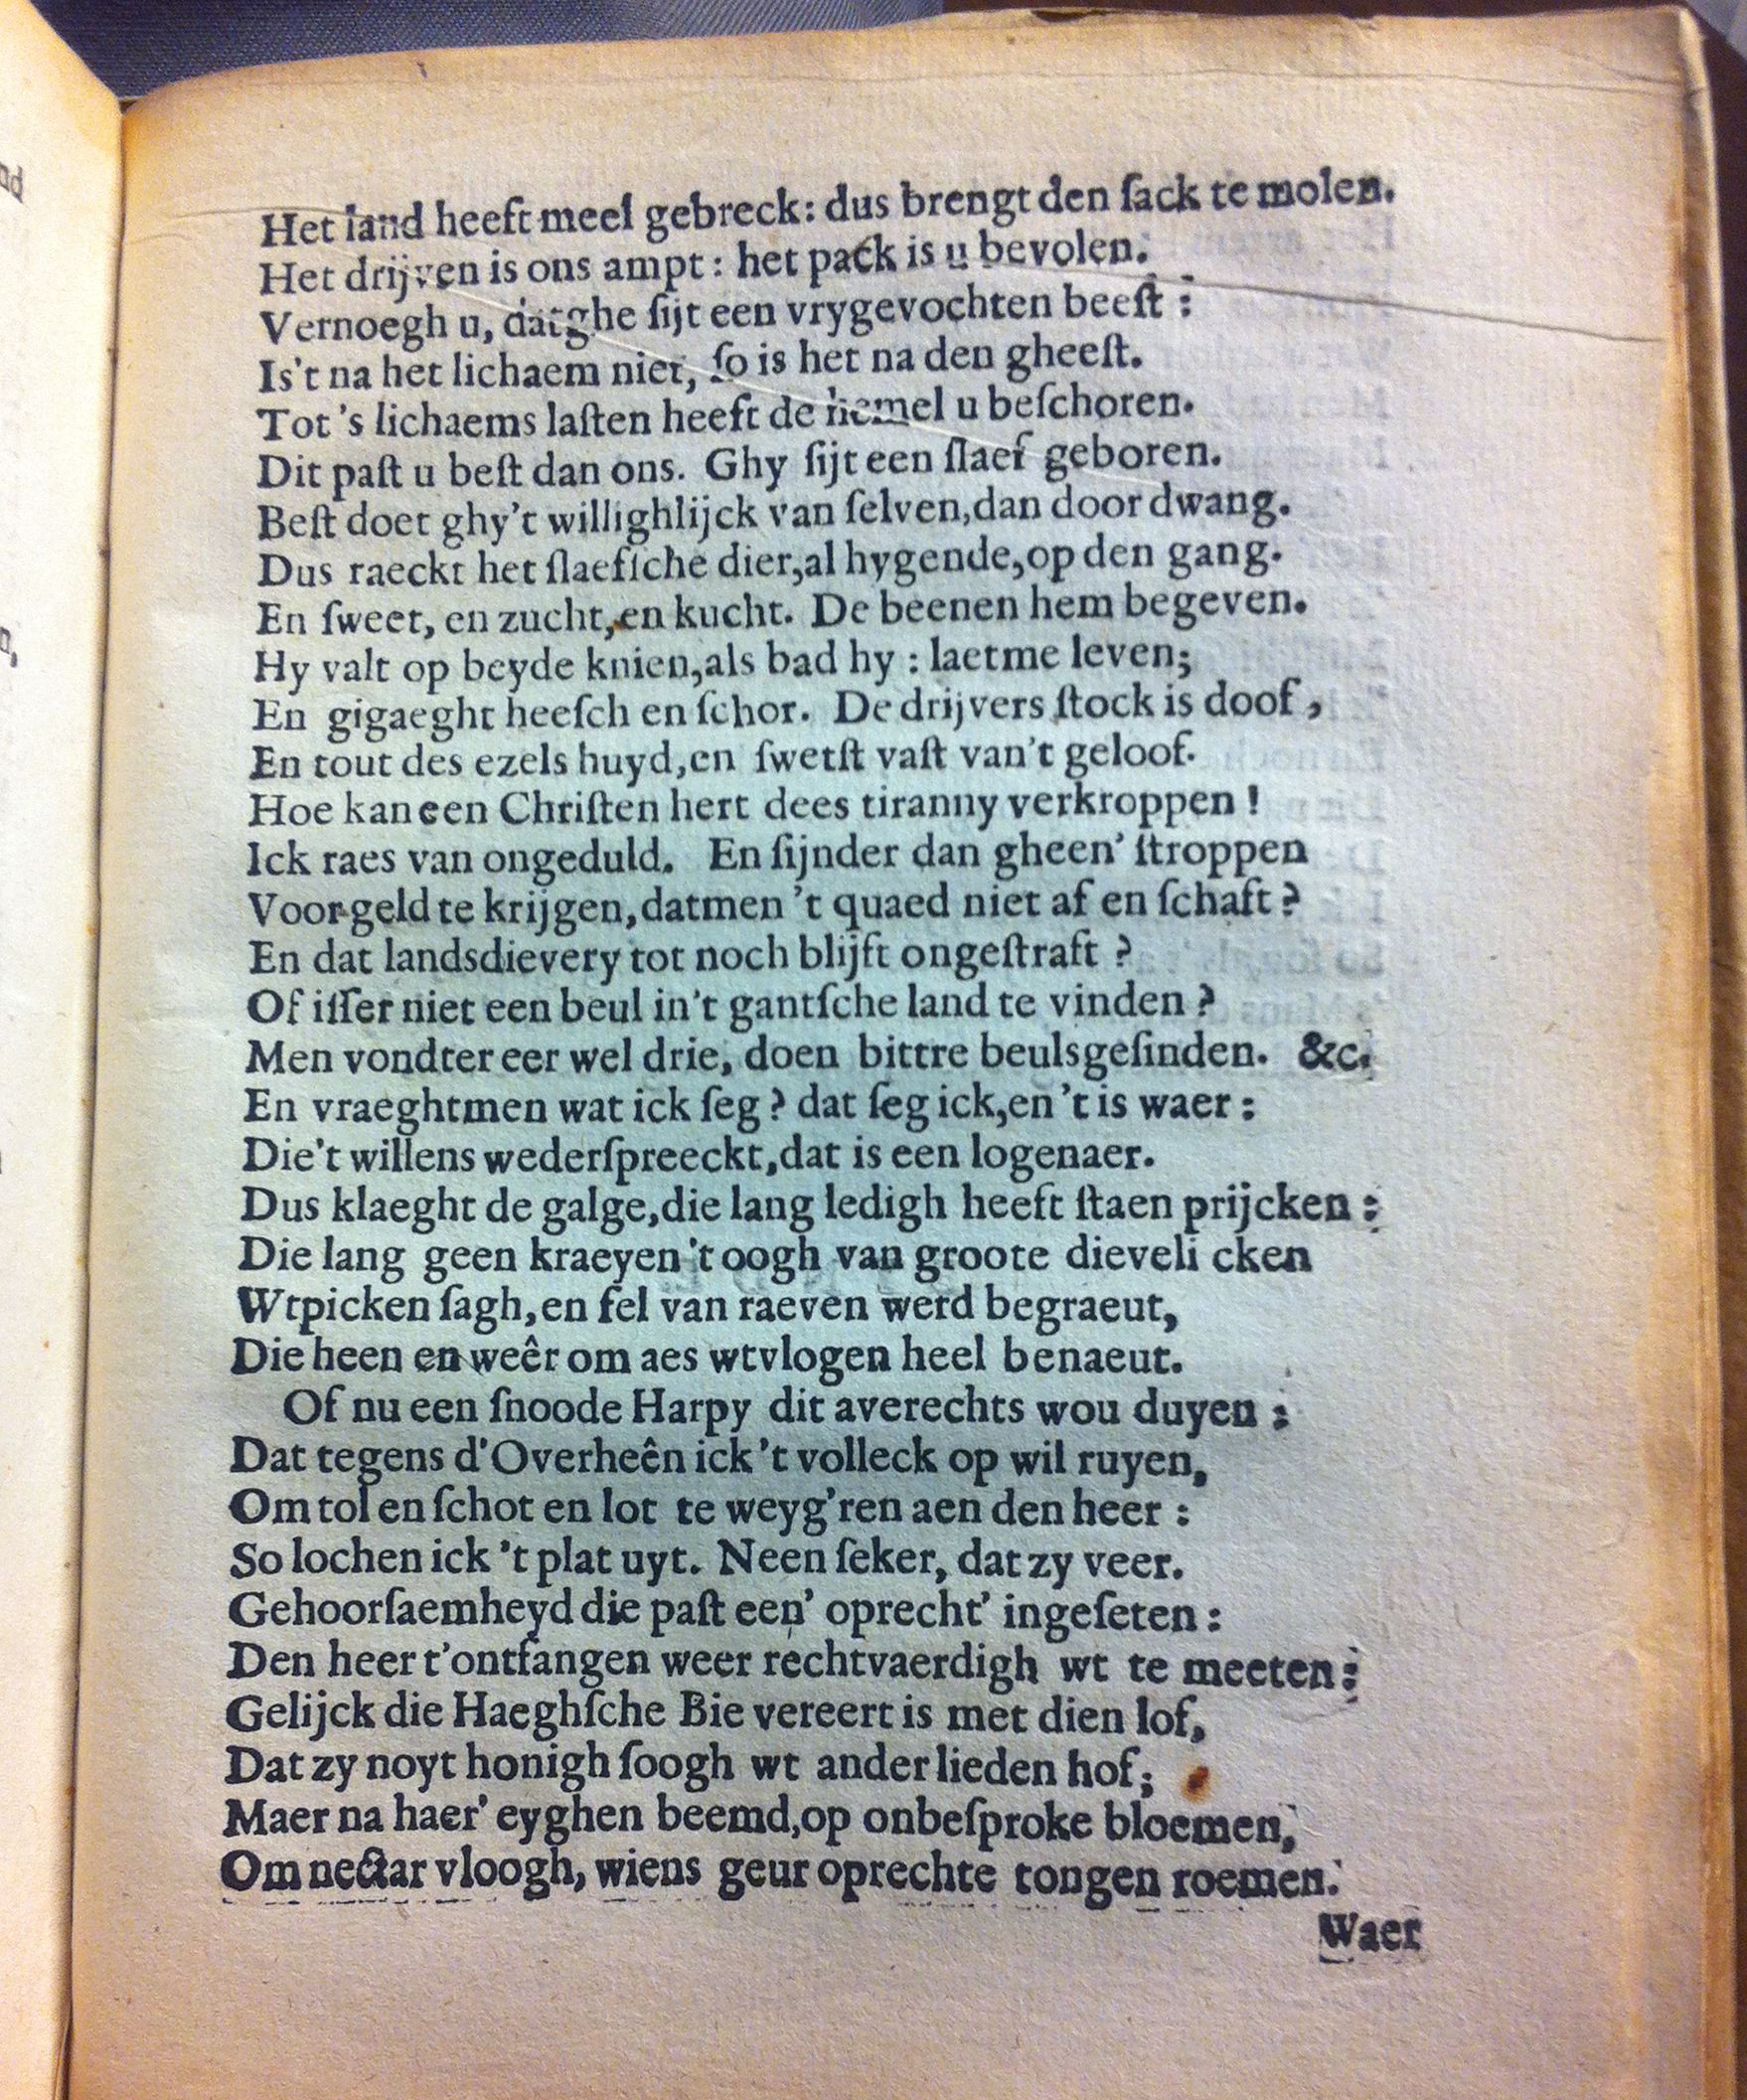 Het land heeft meel gebreck: dus brengt den ſack te molen.
Het drijven is ons ampt: het pack is u bevolen.
Vernoegh u, dat ghe ſijt een vrygevochten beeſt:
Is't na het lichaem niet, ſo is het na den gheeſt.
Tot 's lichaems laſten heeft de hemel u beſchoren.
Dit paſt u beſt dan ons. Ghy ſijt een ſlaef geboren.
Beſt doet ghy't willighlijck van ſelven, dan door dwang.
Dus raeckt het ſlaefſche dier, al hygende, op den gang.
En ſweet, en zucht, en kucht. De beenen hem begeven.
Hy valt op beyde knien, als bad hy: laet me leven;
En gigaeght heeſch en ſchor. De drijvers ſtock is doof,
En tout des ezels huyd, en ſwetſt vaſt van't geloof.
Hoe kan een Chriſten hert dees tiranny verkroppen!
Ick raes van ongeduld. En ſijnder dan gheen' ſtroppen
Voor geld te krijgen, datmen 't quaed niet af en ſchaft?
En dat landsdievery tot noch blijft ongeſtraft?
Of iſſer niet een beul in't gantſche land te vinden?
Men vondter eer wel drie, doen bittre beulsgeſinden. &c.
En vraeghtmen wat ick ſeg? dat ſeg ick, en 't is waer:
Die't willens wederſpreeckt, dat is een logenaer.
Dus klaeght de galge, die lang ledigh heeft ſtaen prijcken:
Die lang geen kraeyen 't oogh van groote dieveli cken
Wtpicken ſagh, en fel van raeven werd begraeut,
Die heen en weêr om aes wtvlogen heel benaeut.
Of nu een ſnoode Harpy dit averechts wou duyen:
Dat tegens d'Overheên ick 't volleck op wil ruyen,
Om tol en ſchot en lot te weyg'ren aen den heer:
So lochen ick 't plat uyt. Neen ſeker, dat zy veer.
Gehoorſaemheyd die paſt een' oprecht' ingeſeten:
Den heer t'ontfangen weer rechtvaerdigh wt te meeten:
Gelijck die Haeghſche Bie vereert is met dien lof,
Dat zy noyt honigh ſoogh wt ander lieden hof;
Maer na haer' eyghen beemd, op onbeſproke bloemen,
Om nectar vloogh, wiens geur oprechte tongen roemen.
Waer